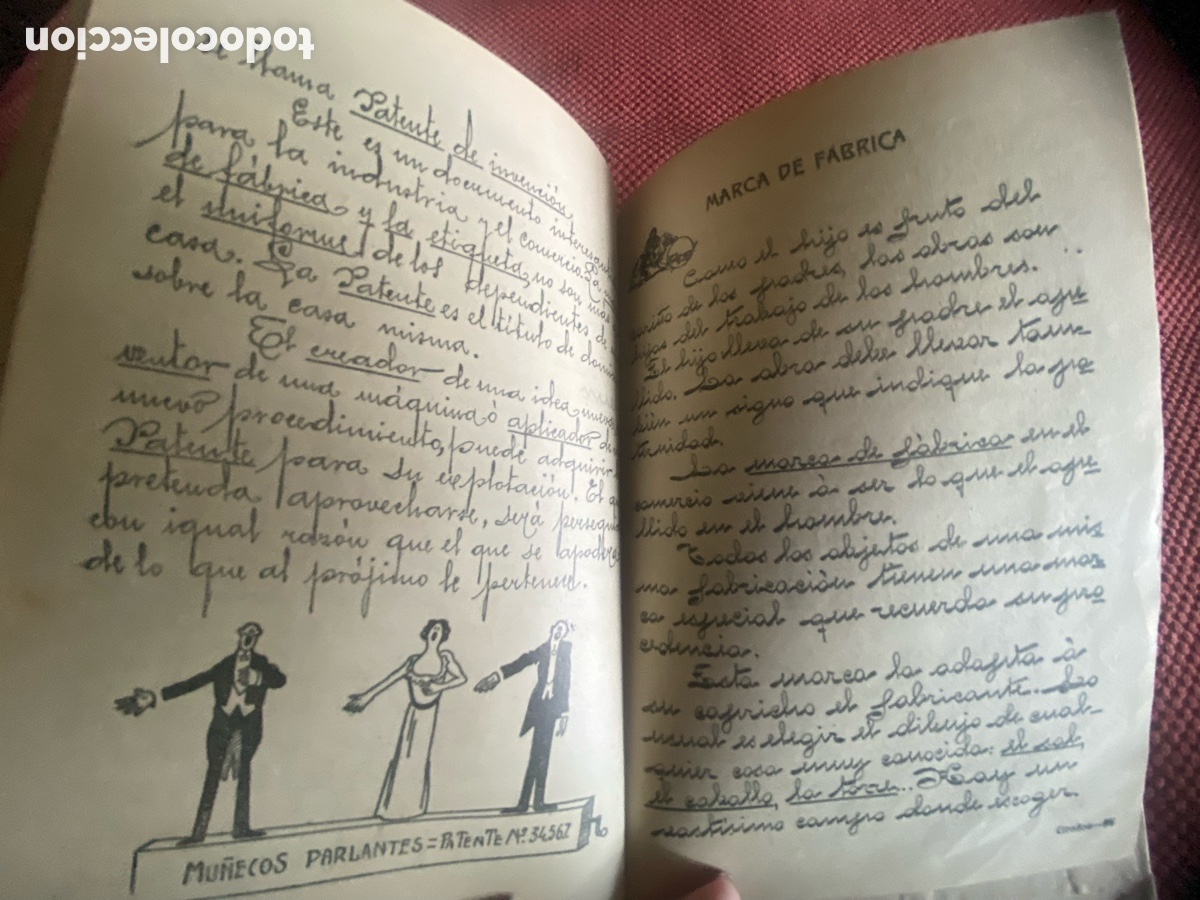 todocoleccion
se llama Patente de invención.
Este es un documento
para la industria y el comercio. La
de fábrica y la etiqueta, no son
el uniforme de los dependientes de
casa. La Patente es el título de
sobre la casa misma.
El creador de una idea
ventor de una máquina ó aplicador de
nuevo procedimiento, puede adquirir
Patente para su explotación. El
pretenda aprovecharse, será
con igual razón que el que se
de lo que al prójimo le pertenece.
MUÑECOS PARLANTES = PATENTE Nº 34567
MARCA DE FÁBRICA
Como el hijo es fruto del
cariño de los padres, las obras son
hijas del trabajo de los hombres.
El hijo lleva de su padre el ape
llido. La obra debe llevar tam-
bién un signo que indique la pa
ternidad.
La marca de fábrica en el
comercio viene á ser lo que el ape
llido en el hombre.
Todos los objetos de una mis
ma fabricación tienen una mar
ca especial que recuerda su pro
cedencia.
Esta marca la adapta á
su capricho el fabricante. Lo
usual es elegir el dibujo de cual-
quier cosa muy conocida: el sol,
el caballo, la torre... Hay un
vastísimo campo donde escoger.